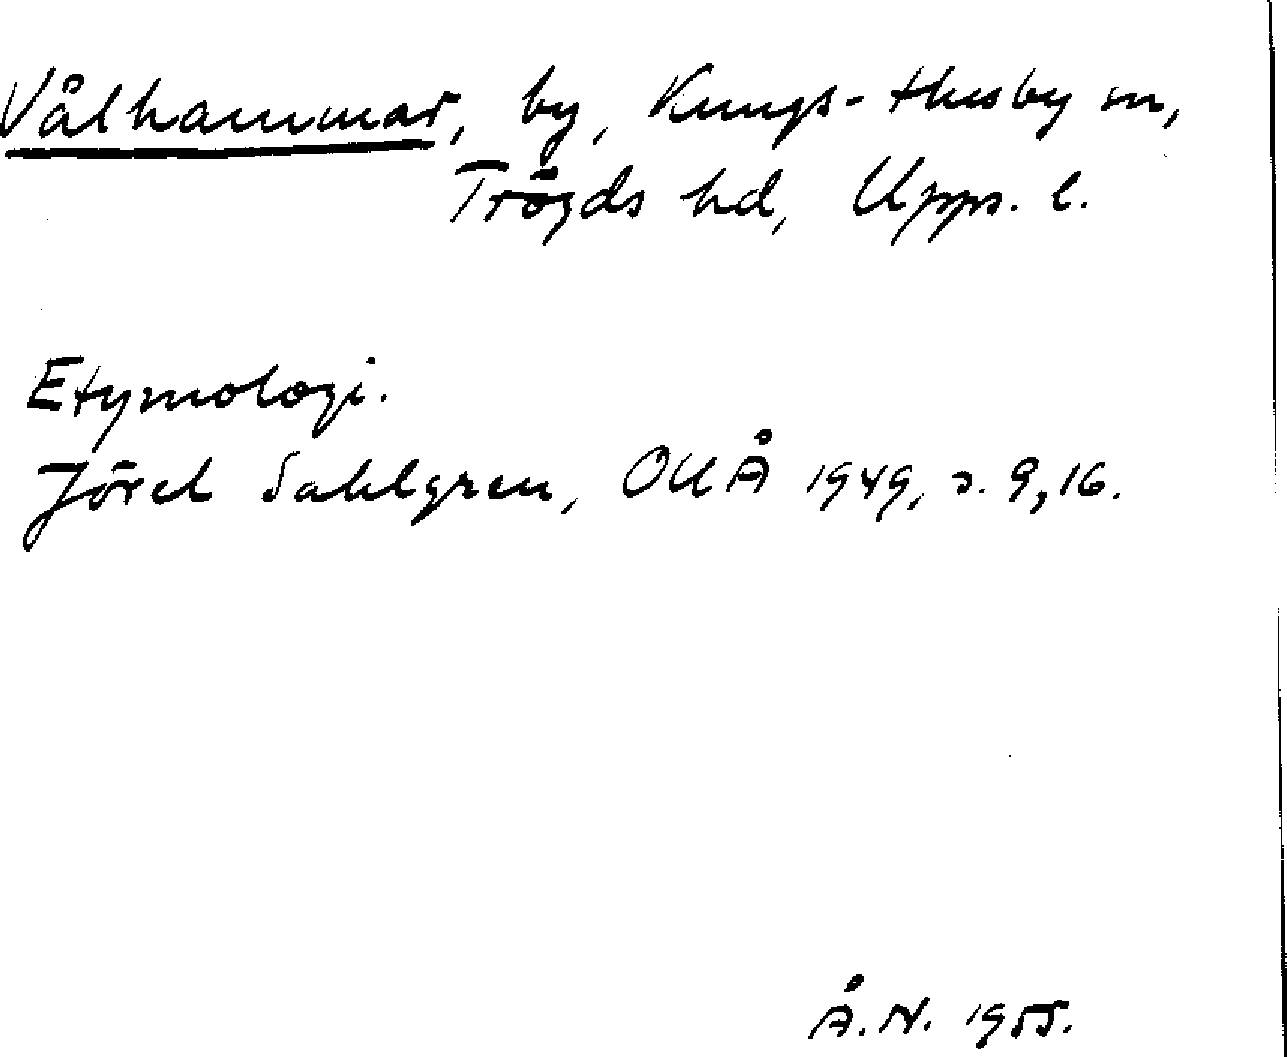 Vålhammar, by, Kungs-Husby sn,
Trögds hd, Upps. l.
Etymologi.
Jöran Sahlgren, OUÅ 1949, s. 9, 16.
Å.N. 1955.